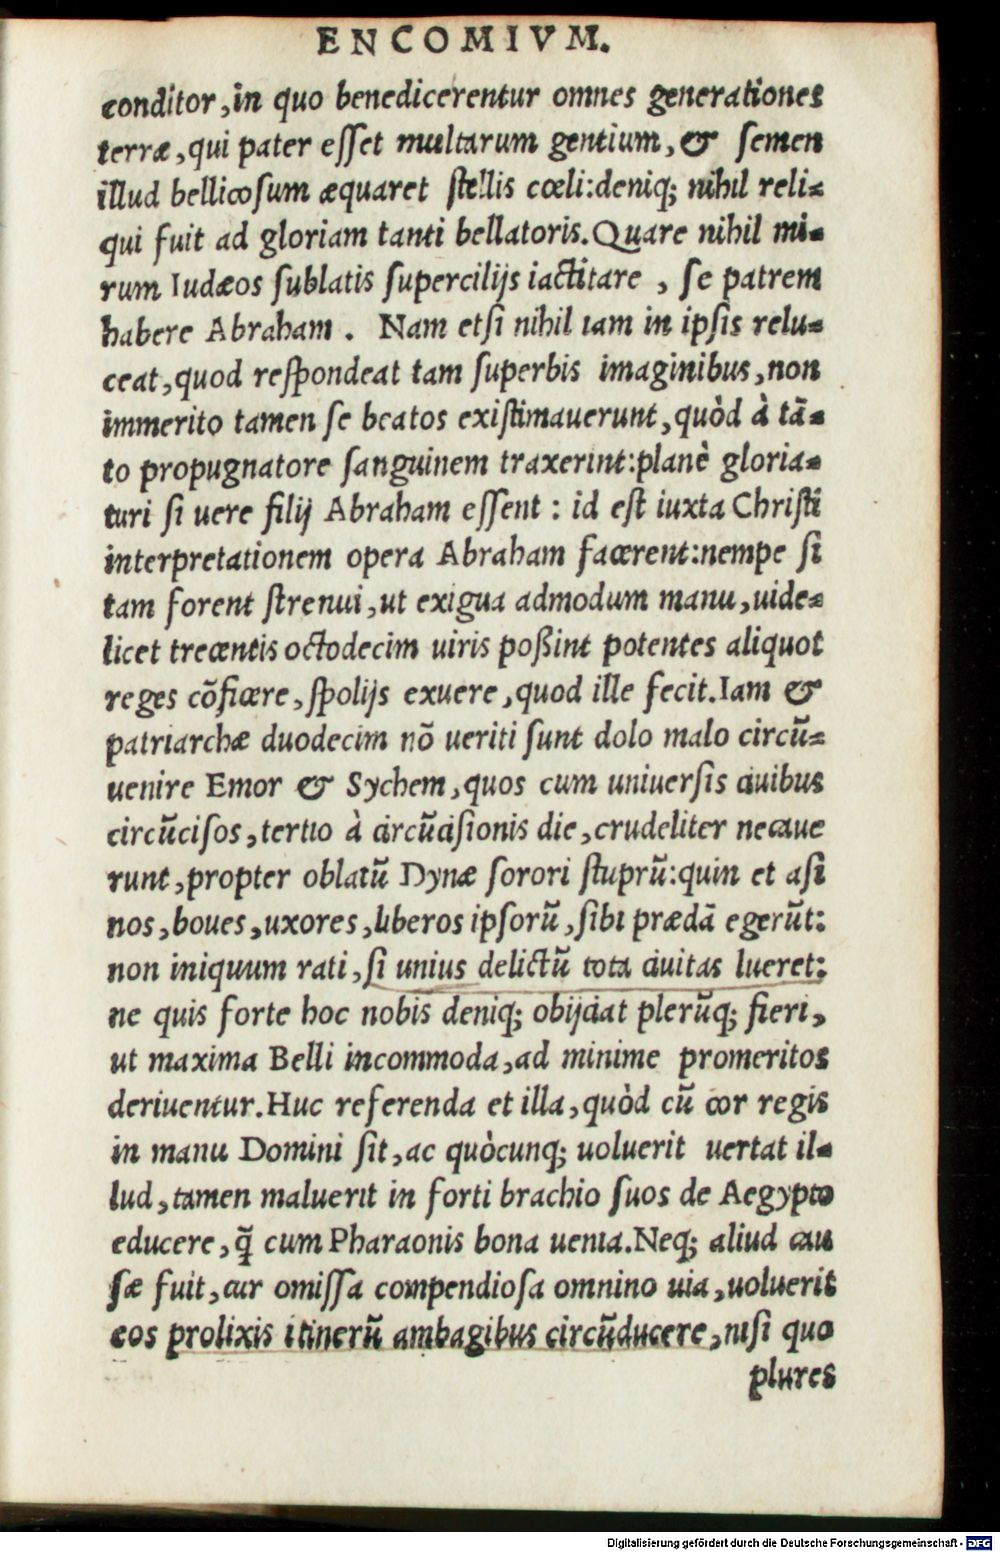 ENCOMIVM.
conditor, in quo benedicerentur omnes generationes
terræ, qui pater esset multarum gentium, & semen
illud bellicosum æquaret stellis cœli: deniq; nihil reli-
qui fuit ad gloriam tanti bellatoris. Quare nihil mi-
rum Iudæos sublatis supercilijs iactitare, se patrem
habere Abraham. Nam etsi nihil iam in ipsis relu-
ceat, quod respondeat tam superbis imaginibus, non
immerito tamen se beatos existimauerunt, quòd à tā-
to propugnatore sanguinem traxerint: planè gloria-
turi si uere filij Abraham essent: id est iuxta Christi
interpretationem opera Abraham facerent: nempe si
tam forent strenui, ut exigua admodum manu, uide-
licet trecentis octodecim uiris poßint potentes aliquot
reges cōficere, spolijs exuere, quod ille fecit. Iam &
patriarchæ duodecim nō ueriti sunt dolo malo circū-
uenire Emor & Sychem, quos cum uniuersis ciuibus
circūcisos, tertio à circūcisionis die, crudeliter necaue
runt, propter oblatū Dynæ sorori stuprū: quin et asi
nos, boues, uxores, liberos ipsorū, sibi prædā egerūt:
non iniquum rati, si unius delictū tota ciuitas lueret:
ne quis forte hoc nobis deniq; obijciat plerūq; fieri,
ut maxima Belli incommoda, ad minime promeritos
deriuentur. Huc referenda et illa, quòd cū cor regis
in manu Domini sit, ac quòcunq; uoluerit uertat il-
lud, tamen maluerit in forti brachio suos de Aegypto
educere, q̃ cum Pharaonis bona uenia. Neq; aliud cau
sæ fuit, cur omissa compendiosa omnino uia, uoluerit
eos prolixis itinerū ambagibus circūducere, nisi quo
plures
Digitalisierung gefördert durch die Deutsche Forschungsgemeinschaft - DFG